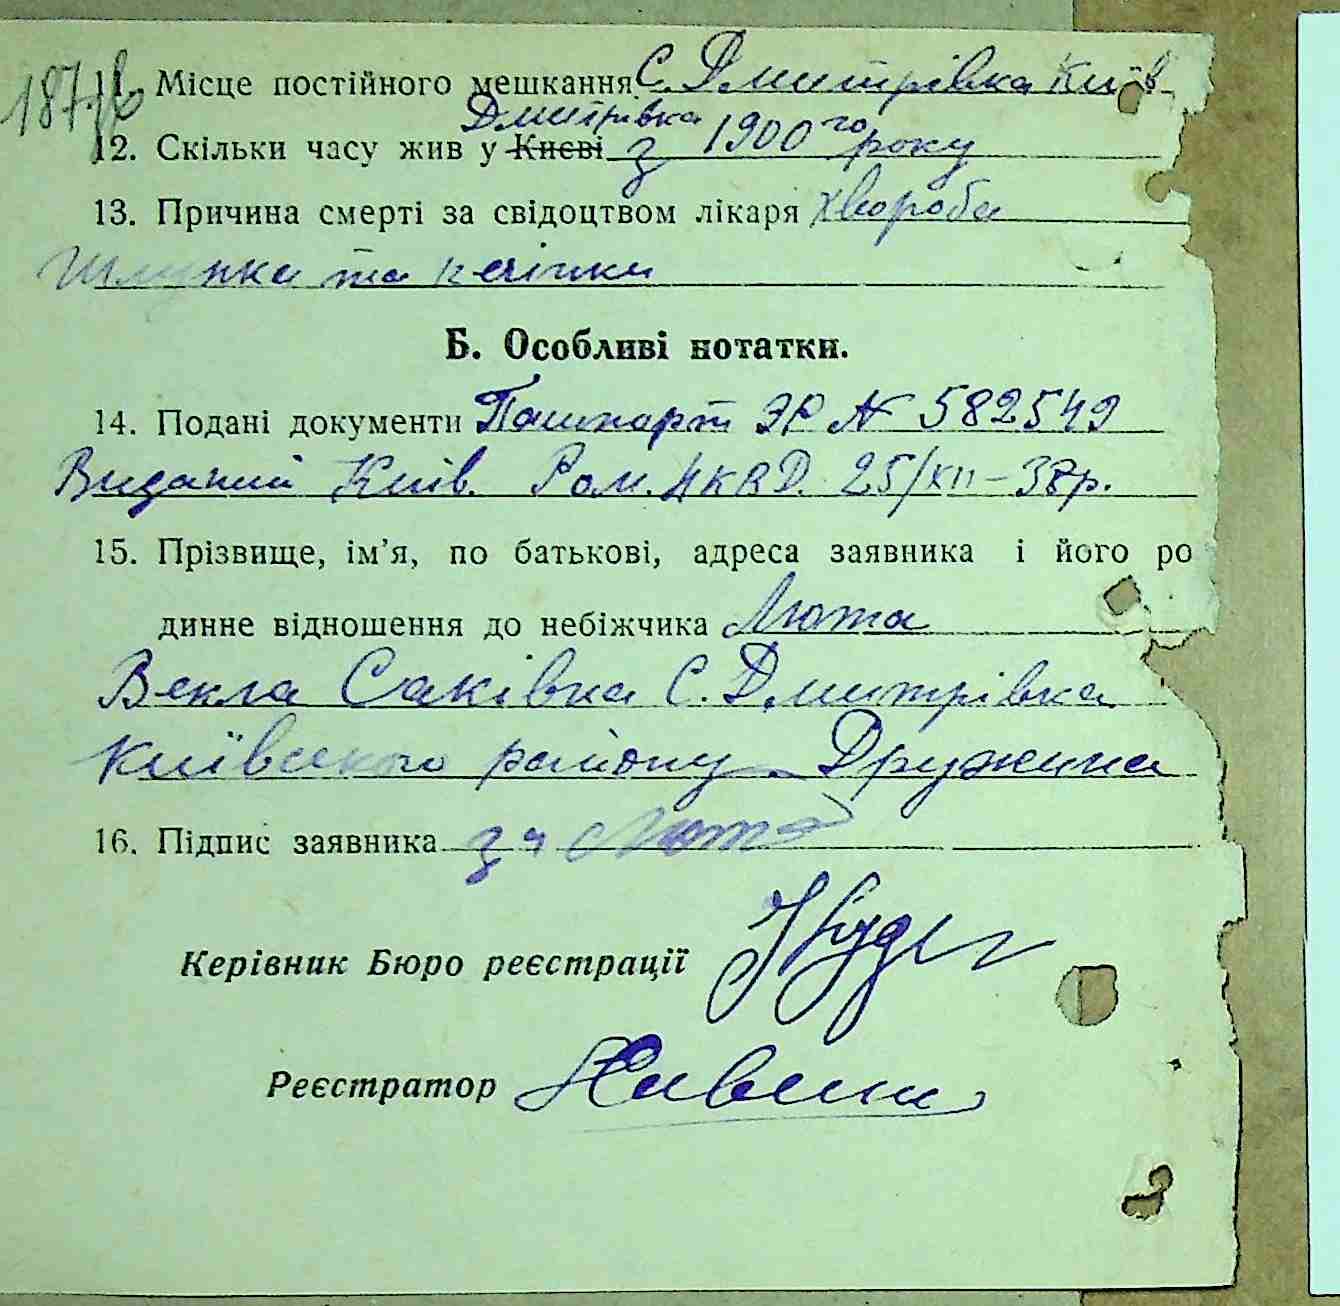 187
11. Місце постійного мешкання С. Дмитрівка Київ
Дмитрівка
12. Скільки часу жив у Києві з 1900го року
13. Причина смерті за свідоцтвом лікаря хвороба
Шлунка та печінки
Б. Особливі нотатки.
14. Подані документи Пашпорт ЭР № 582549
Виданий Київ. Ром. НКВД. 25/XII-38р.
15. Прізвище, ім’я, по батькові, адреса заявника і його ро
динне відношення до небіжчика Люта
Векла Саківна С. Дмитрівка
Київського району Дружина
16. Підпис заявника за Люта
Керівник Бюро реєстрації
Реєстратор